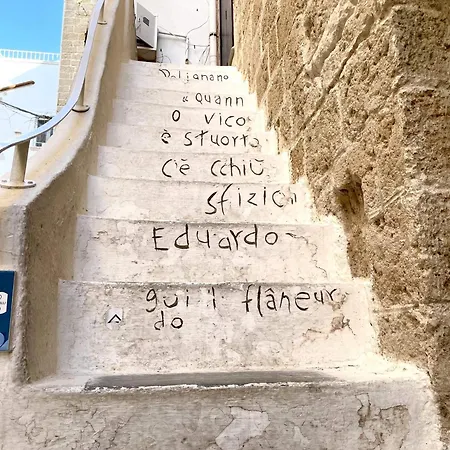 Polignano
« Quann
O vico
è stuorto
c'è cchiù
sfizio »
Eduardo
gui il flâneur
do